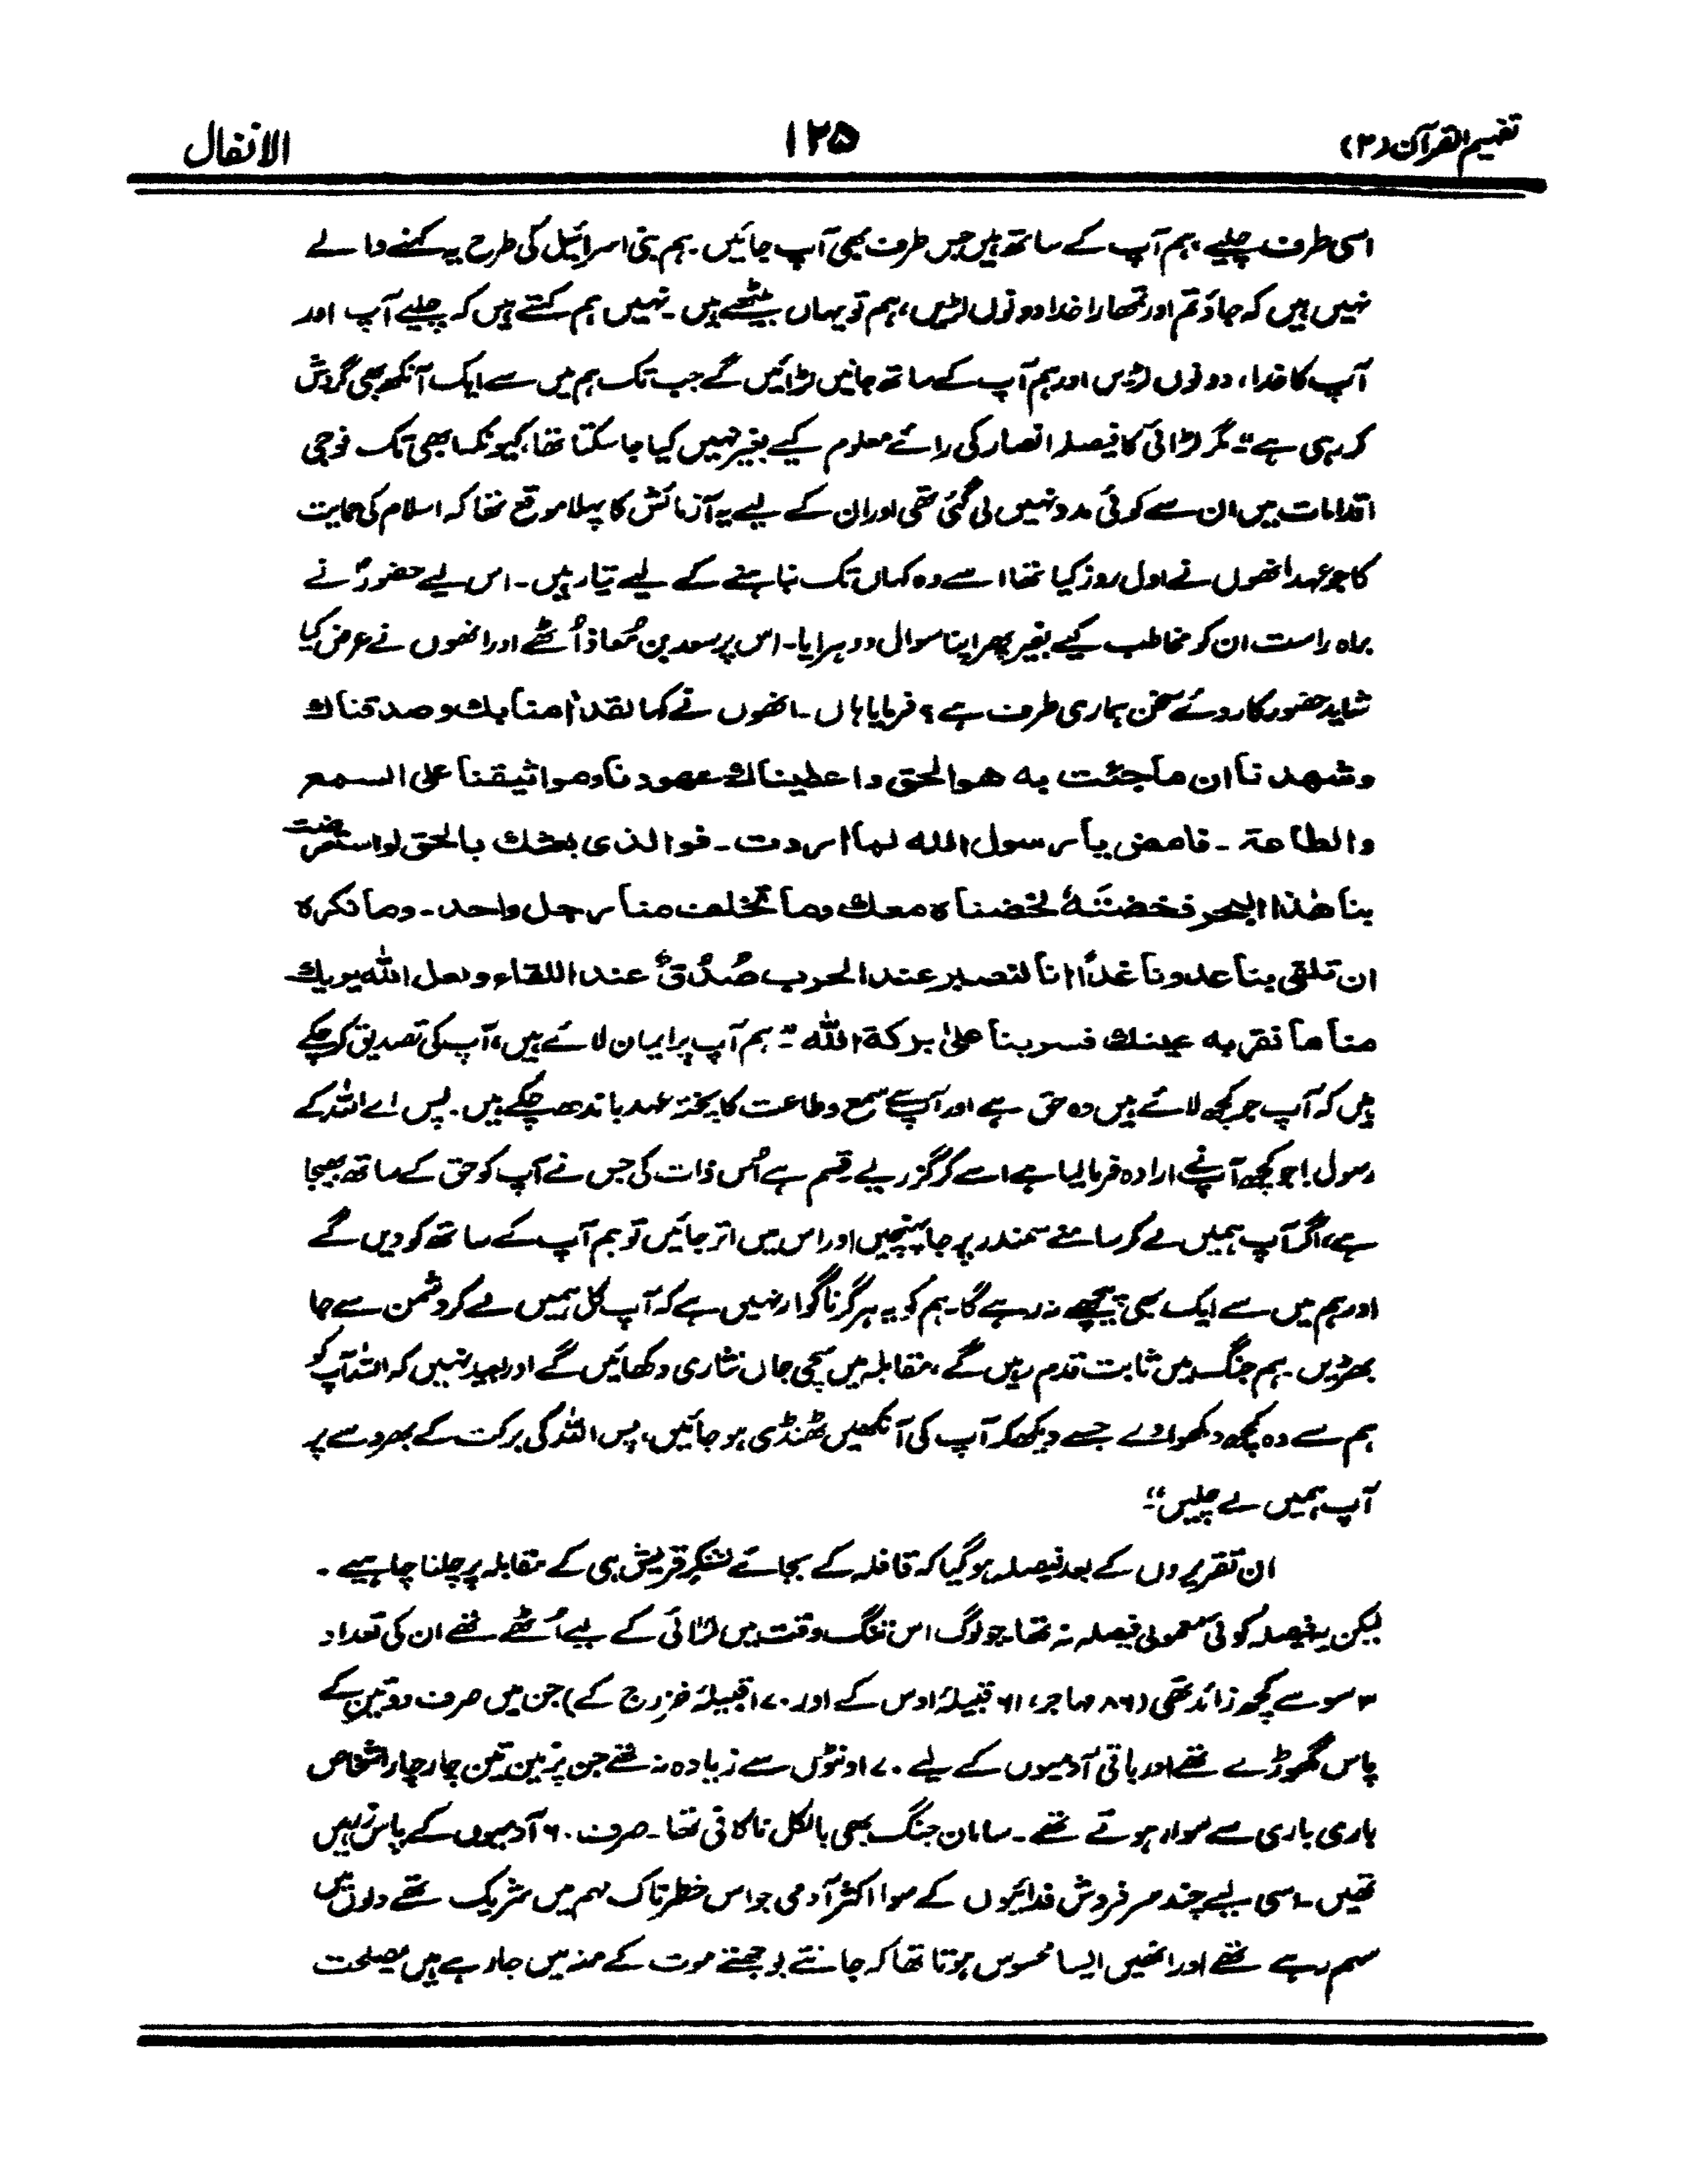 تفہیم القرآن (۲)
۱۲۵
الانفال
اسی طرف چلیے، ہم آپ کے ساتھ ہیں جس طرف بھی آپ جائیں۔ ہم بنی اسرائیل کی طرح یہ کہنے والے
نہیں ہیں کہ جاؤ تم اور تمھارا خدا دونوں لڑیں، ہم تو یہاں بیٹھے ہیں۔ نہیں ہم کہتے ہیں کہ چلیے آپ اور
آپ کا خدا، دونوں لڑیں اور ہم آپ کے ساتھ جانیں لڑائیں گے جب تک ہم میں سے ایک آنکھ بھی گردش
کر رہی ہے“۔ مگر لڑائی کا فیصلہ انصار کی رائے معلوم کیے بغیر نہیں کیا جا سکتا تھا، کیونکہ ابھی تک فوجی
اقدامات میں ان سے کوئی مدد نہیں لی گئی تھی اور ان کے لیے یہ آزمائش کا پہلا موقع تھا کہ اسلام کی حمایت
کا جو عہد انھوں نے اول روز کیا تھا اسے وہ کہاں تک نباہنے کے لیے تیار ہیں۔ اس لیے حضورؐ نے
براہ راست ان کو مخاطب کیے بغیر پھر اپنا سوال دوہرایا۔ اس پر سعد بن مُعاذ اُٹھے اور انھوں نے عرض کیا
شاید حضور کا روئے سخن ہماری طرف ہے؟ فرمایا ہاں۔ انھوں نے کہا لقد اٰمنا بك وصدقناك
وشهدنا ان ما جئت به هو الحق واعطيناك عهودنا ومواثيقنا على السمع
والطاعة۔ فامض يا رسول الله لما اردت۔ فوالذى بعثك بالحق لو استعرضت
بنا هٰذا البحر فخضتَهٗ لخضناه معك وما تخلف منا رجل واحد۔ وما نكره
ان تلقى بنا عدونا غدًا انا لنصبر عند الحرب صُدُقٌ عند اللقاء ولعل الله يريك
منا ما تقر به عينك فسر بنا علىٰ بركة الله“۔ ہم آپ پر ایمان لائے ہیں، آپ کی تصدیق کر چکے
ہیں کہ آپ جو کچھ لائے ہیں وہ حق ہے اور آپ سے سمع و طاعت کا پختہ عہد باندھ چکے ہیں۔ پس اے اللہ کے
رسول! جو کچھ آپ نے ارادہ فرما لیا ہے اسے کر گزریے۔ قسم ہے اُس ذات کی جس نے آپ کو حق کے ساتھ بھیجا
ہے، اگر آپ ہمیں لے کر سامنے سمندر پر جا پہنچیں اور اس میں اتر جائیں تو ہم آپ کے ساتھ کودیں گے
اور ہم میں سے ایک بھی پیچھے نہ رہے گا۔ ہم کو یہ ہرگز ناگوار نہیں ہے کہ آپ کل ہمیں لے کر دشمن سے جا
بھڑیں۔ ہم جنگ میں ثابت قدم رہیں گے، مقابلہ میں سچی جاں نثاری دکھائیں گے اور بعید نہیں کہ اللہ آپ کو
ہم سے وہ کچھ دکھوا دے جسے دیکھ کر آپ کی آنکھیں ٹھنڈی ہو جائیں، پس اللہ کی برکت کے بھروسے پر
آپ ہمیں لے چلیں“۔
ان تقریروں کے بعد فیصلہ ہو گیا کہ قافلہ کے بجائے لشکر قریش ہی کے مقابلہ پر چلنا چاہیے۔
لیکن یہ فیصلہ کوئی معمولی فیصلہ نہ تھا۔ جو لوگ اس تنگ وقت میں لڑائی کے لیے اُٹھے تھے ان کی تعداد
۳ سو سے کچھ زائد تھی (۸۶ مہاجر، ۶۱ قبیلۂ اوس کے اور ۱۷۰ قبیلۂ خزرج کے) جن میں صرف دو تین کے
پاس گھوڑے تھے اور باقی آدمیوں کے لیے ۷۰ اونٹوں سے زیادہ نہ تھے جن پر تین تین چار چار اشخاص
باری باری سے سوار ہوتے تھے۔ سامان جنگ بھی بالکل ناکافی تھا۔ صرف ۶۰ آدمیوں کے پاس زرہیں
تھیں۔ اسی لیے چند سرفروش فدائیوں کے سوا اکثر آدمی جو اس خطرناک مہم میں شریک تھے دلوں میں
سہم رہے تھے اور انھیں ایسا محسوس ہوتا تھا کہ جانتے بوجھتے موت کے منہ میں جا رہے ہیں۔ مصلحت